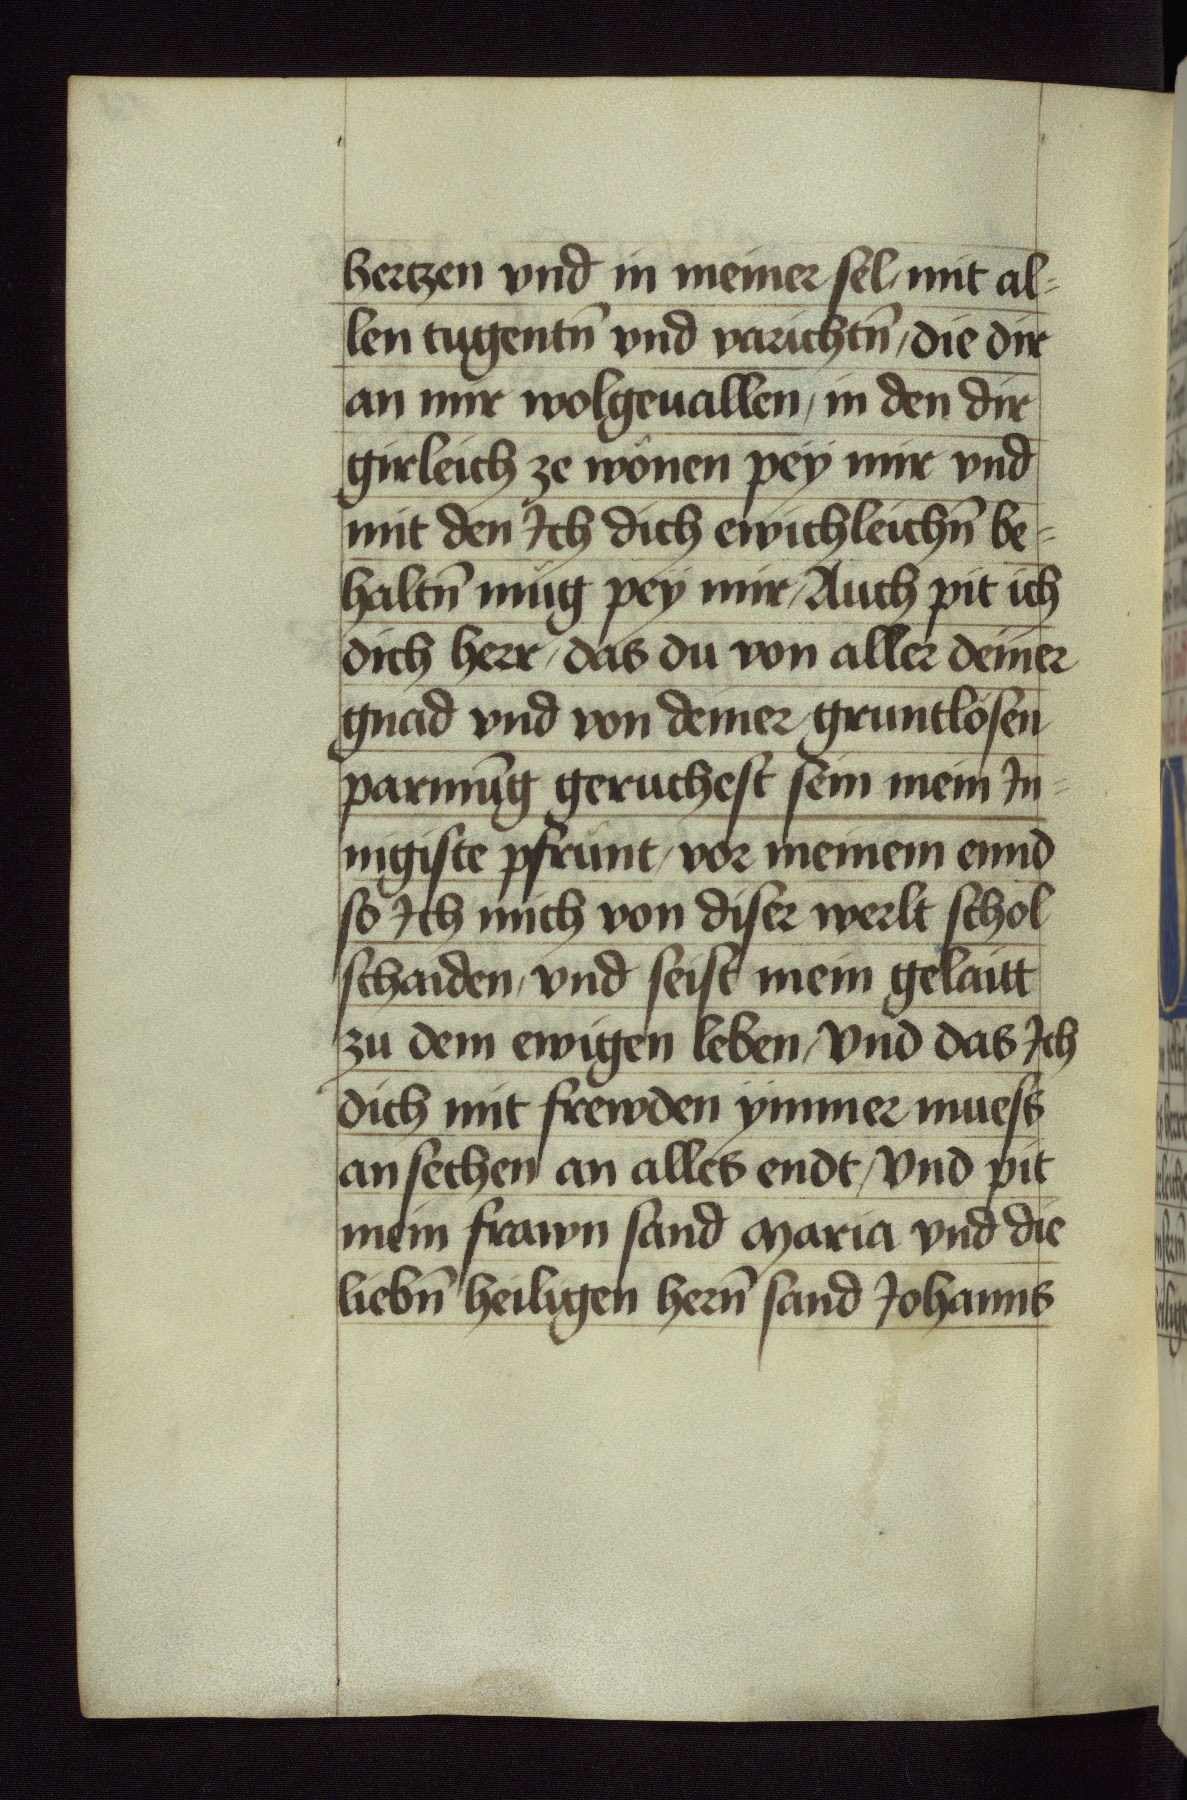 hertzen vnd in meiner sel / mit al=
len tugentn̄ vnd varichtn̄ / die dir
an mir wolgeuallen / in den dir
girleich ze wônen peÿ mir vnd
mit den Ich dich ewichleichn̄ be=
haltn̄ müg peÿ mir / Auch pit ich
dich herr / das du von aller deiner
gnad vnd von deiner gruntlosen
parmūg geruchest sein mein In=
nigiste pfrünt / vor meinem ennd
so Ich mich von diser werlt schol
schaiden / vnd seist mein gelaitt
zu dem ewigen leben / Vnd das Ich
dich mit frewden ÿmmer muess
an sechen an alles endt / Vnd pit
mein frawn sand Maria vnd die
liebn̄ heiligen hern̄ sand Johanns